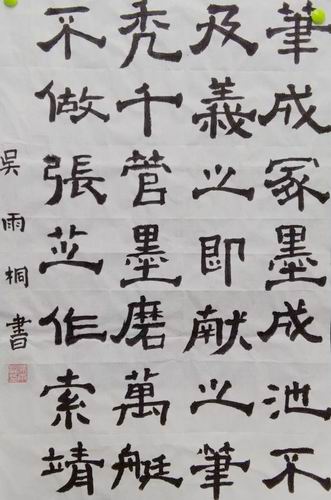 筆成冢墨成池不
及羲之即献之筆
秃千管墨磨萬艇
不做張芝作索靖
吳雨桐書